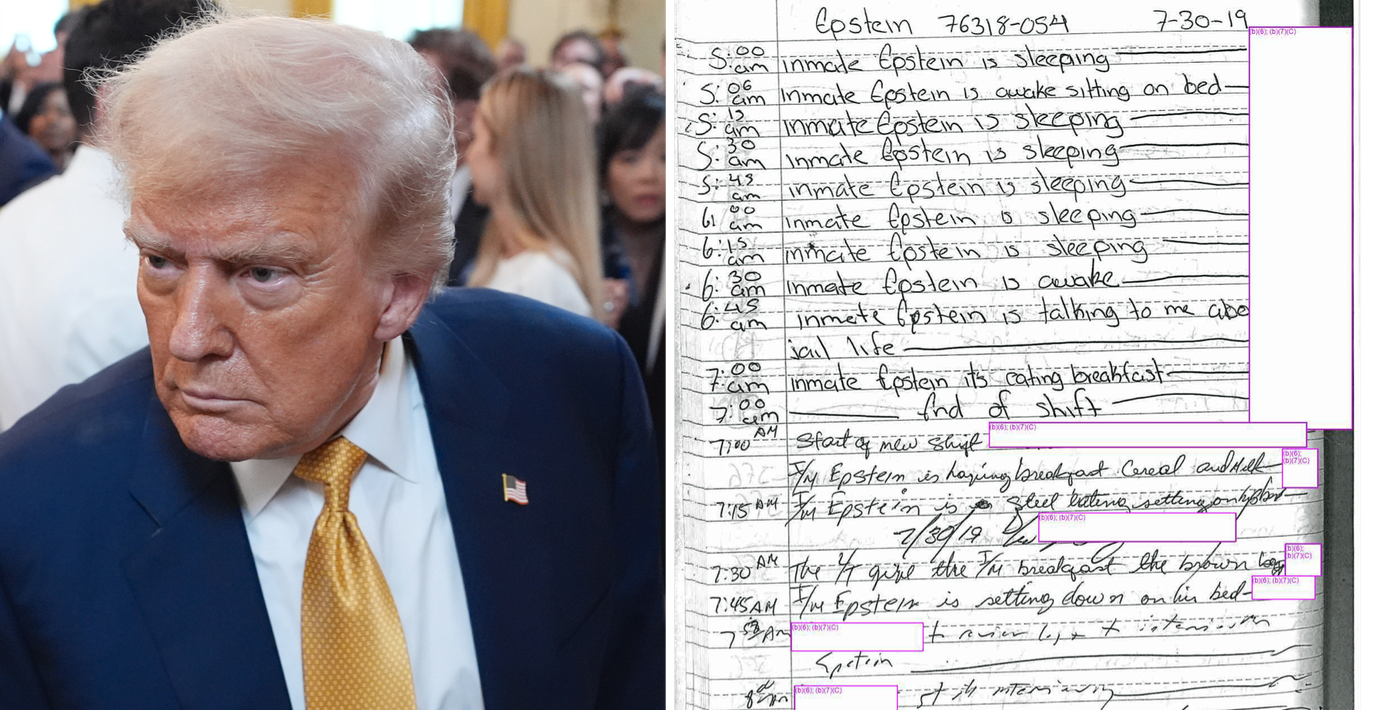 Epstein 76318-054 7-30-19
5:00 am inmate Epstein is sleeping
5:06 am inmate Epstein is awake sitting on bed
5:15 am inmate Epstein is sleeping
5:30 am inmate Epstein is sleeping
5:45 am inmate Epstein is sleeping
6:00 am inmate Epstein is sleeping
6:15 am inmate Epstein is sleeping
6:30 am inmate Epstein is awake
6:45 am inmate Epstein is talking to me abo
jail life
7:00 am inmate Epstein it's eating breakfast
7:00 am End of shift
7:00 AM Start of new shift
I/M Epstein is having breakfast Cereal and Milk
7:15 AM I/M Epstein is steel eating setting on
7/30/19
7:30 AM The I/M breakfast the brown bag
7:45 AM I/M Epstein is setting down on his bed
(b)(6); (b)(7)(C)
(b)(6); (b)(7)(C)
(b)(6); (b)(7)(C)
(b)(6); (b)(7)(C)
(b)(6); (b)(7)(C)
(b)(6); (b)(7)(C)
(b)(6); (b)(7)(C) to review log
Epstein
(b)(6); (b)(7)(C)